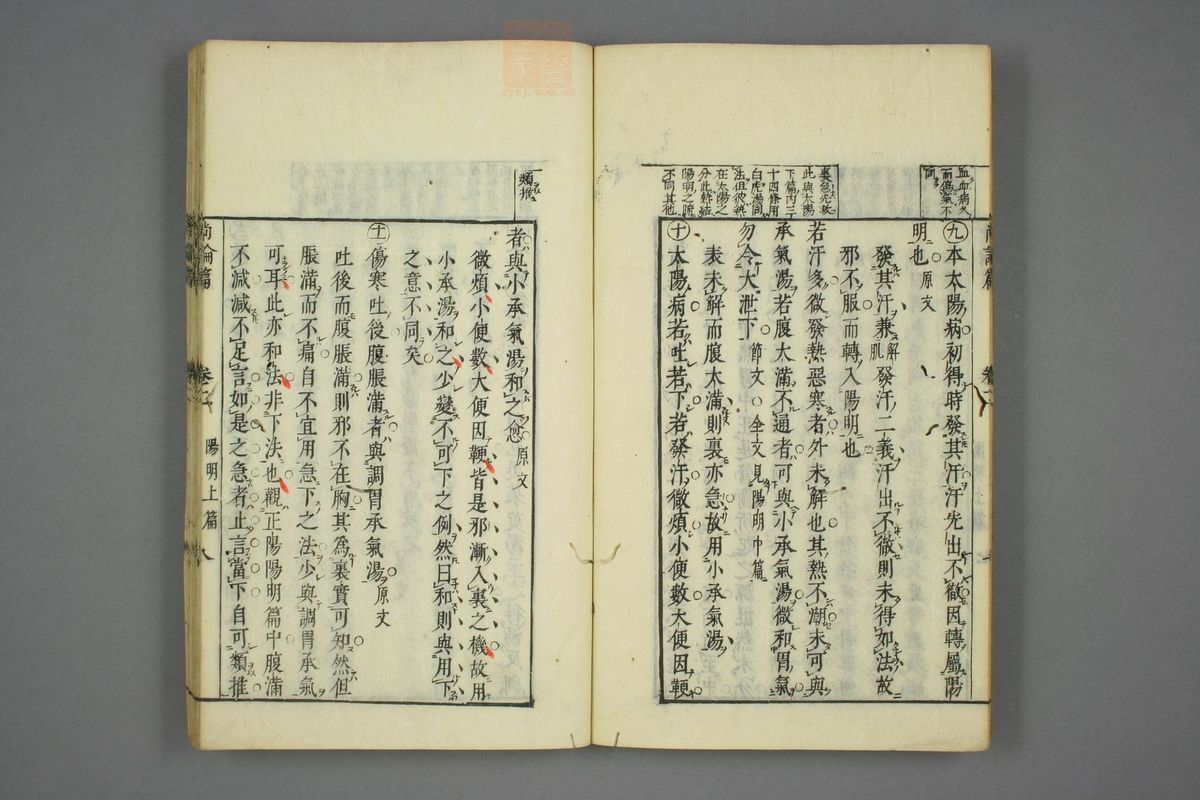 血血病又
而傷氣不
同
九本太陽病初得時發其汗汗先出不徹因轉屬陽
明也原文
發其汗兼解肌發汗二義汗出不徹則未得如法故
邪不服而轉入陽明也
若汗多微發熱惡寒者外未解也其熱不潮未可與
承氣湯若腹大滿不通者可與小承氣湯微和胃氣
勿令大泄下節文○全文見陽明中篇
表未解而腹大滿則裏亦急故用小承氣湯
十太陽病若吐若下若發汗微煩小便數大便因鞕
裏急先攻
此與太陽
下篇內三
十四條用
白虎湯同
法但彼熱
在太陽之
分此熱結
陽明之腑
不同其他
類推
者與小承氣湯和之愈原文
微煩小便數大便因鞕皆是邪漸入裏之機故用
小承湯和之少變不可下之例然曰和則與用下
之意不同矣
十一傷寒吐後腹脹滿者與調胃承氣湯原文
吐後而腹脹滿則邪不在胸其為裏實可知然但
脹滿而不痛自不宜用急下之法少與調胃承氣
可耳此亦和法非下法也觀正陽陽明篇中腹滿
不減減不足言如是之急者止言當下自可類推
尚論篇
卷之二
陽明上篇